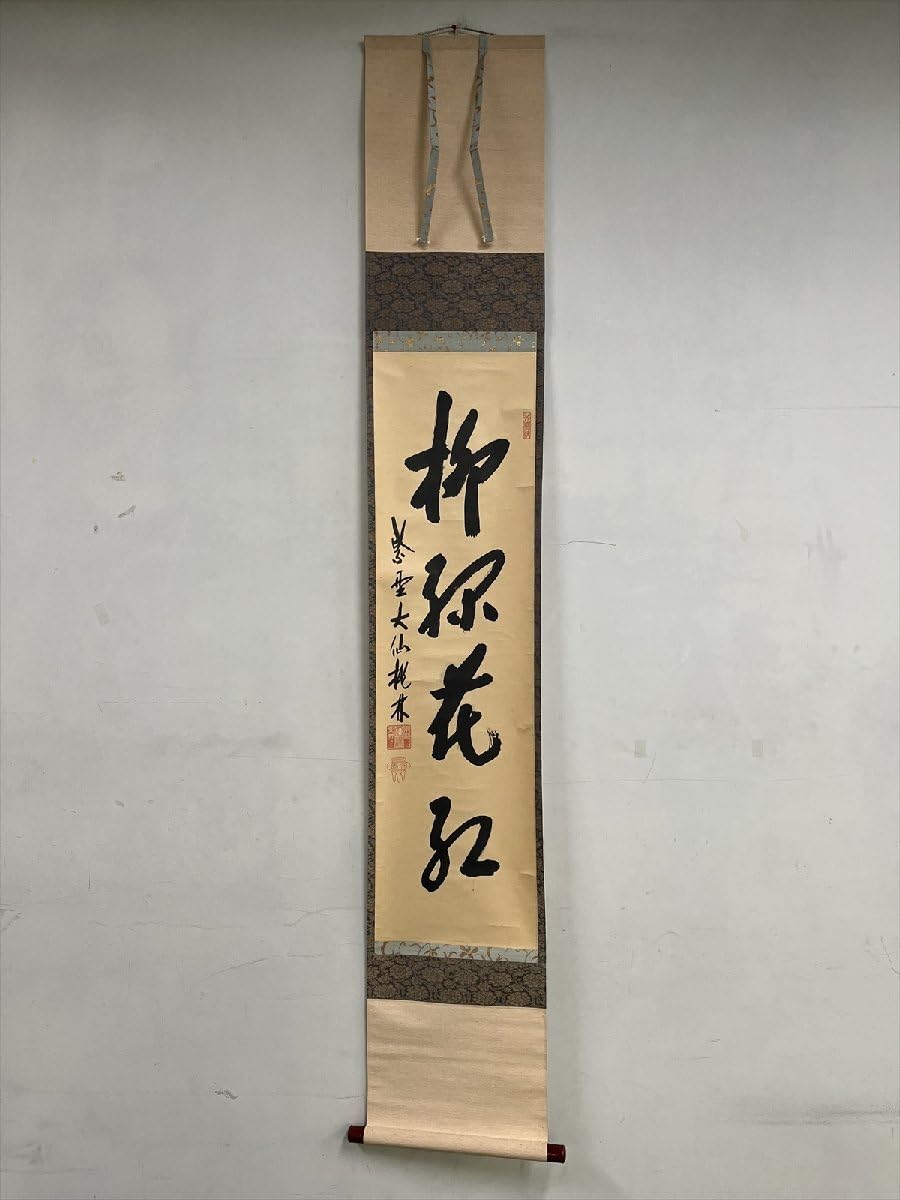 柳緑花紅
紫雲大仙桃林